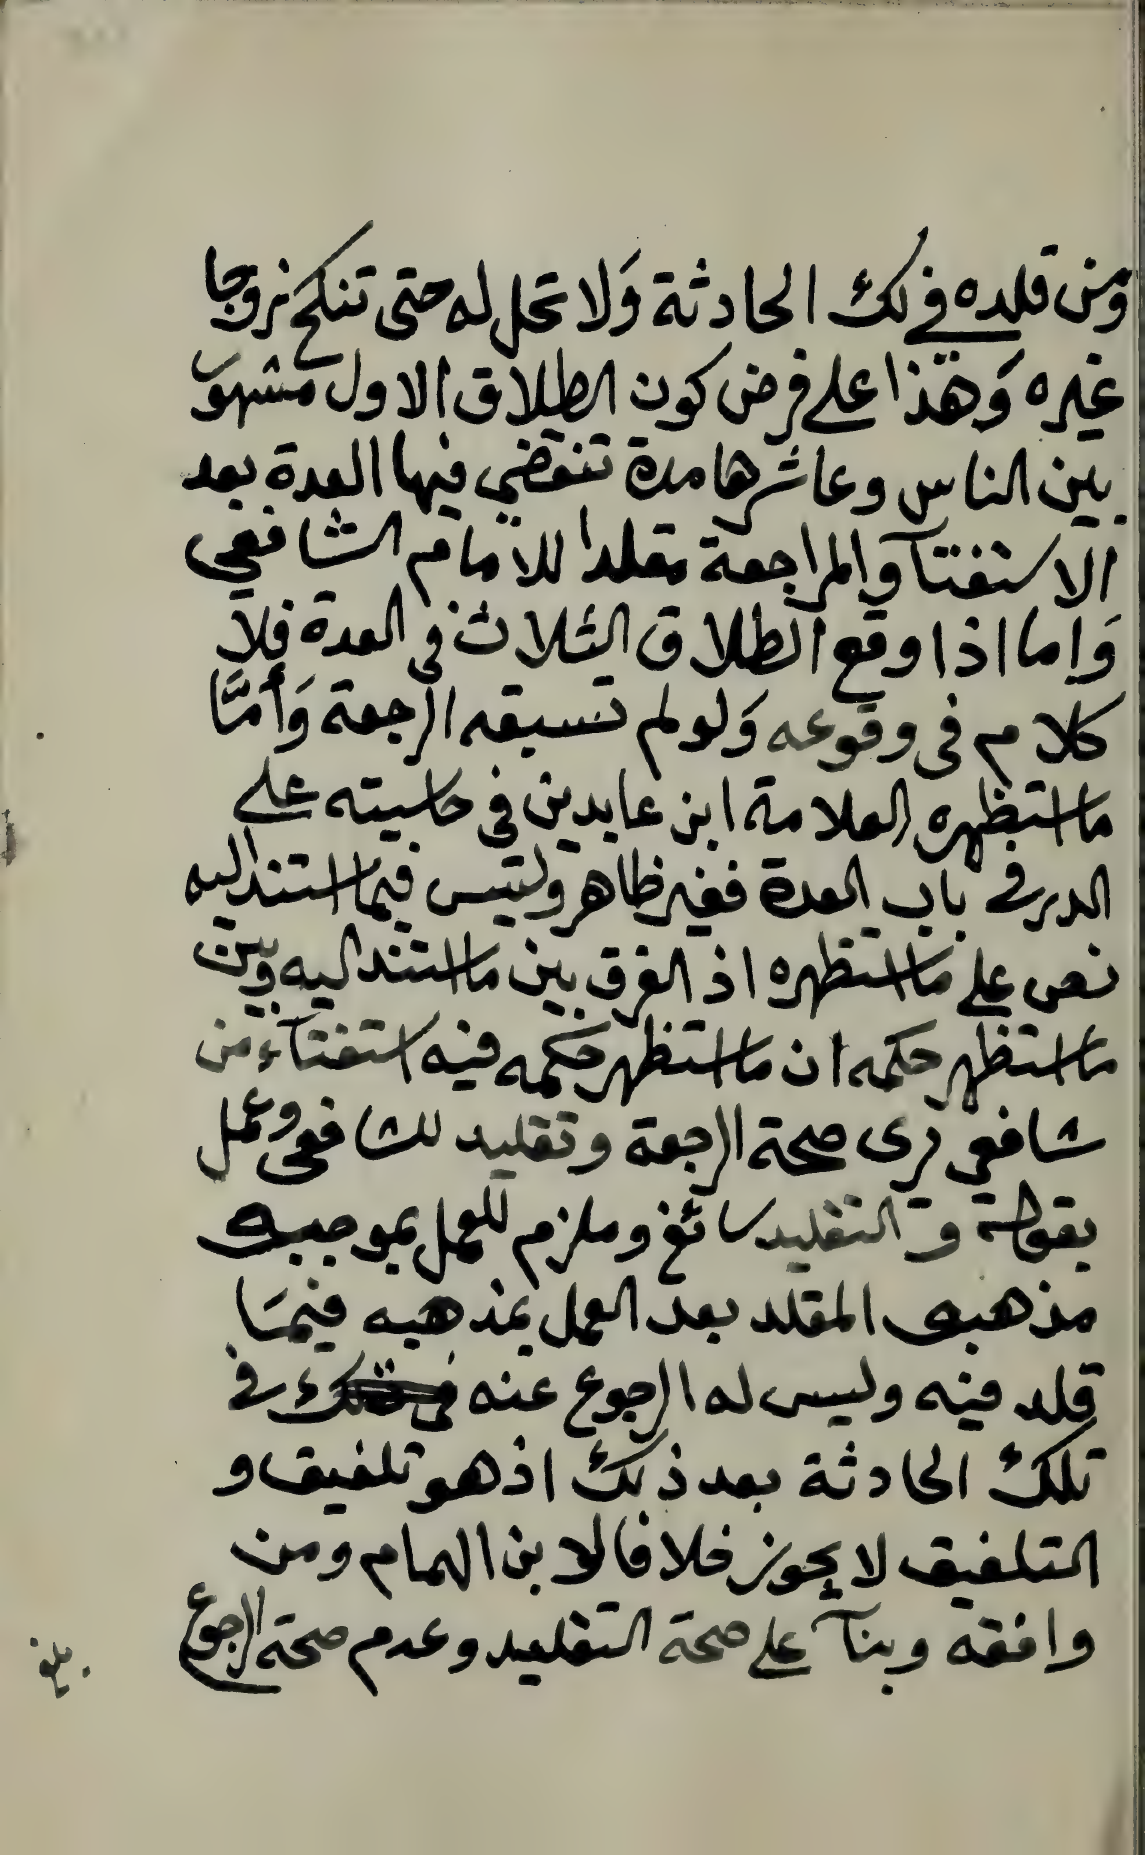 ومن قلده في لك الحادثة وَلا تحل له حتى تنكحَ زوجا
غيره وَهذا على فرض كون الطلاق الاول مشهوَر
بين الناس وعاشرها مدة تنقضي فيها العدة بعد
الاستفتآ والمراجعة مقلدا للامام الشافعي
وَاما اذا وقع الطلاق الثلاث في العدة فلا
كلام في وقوعه وَلو لم تسبقه الرجعة وَأمَّا
ما استظهره العلامة ابن عابدين في حاسيته على
الدر في باب العدة فغير ظاهر وليس فيما استند اليه
نص على ما استظهره اذ الفرق بين ما استند اليه وبين
ما استظهر حكمه ان ما استظهر حكمه فيه استفتآء من
شافعي يرى صحة الرجعة وتقليد للشافعي وعمل
بقوله و التقليد سائغ وملزم للعمل بموجبه
مذهب المقلد بعد العمل بمذهبه فيمَا
قلد فيه وليس له الرجوع عنه في
تلك الحادثة بعد ذلك اذ هو تلفيق و
التلفيق لا يجوز خلافا لابن الهمام ومن
وافقه وبنآ على صحة التقليد وعدم صحة الرجوع
بلغ